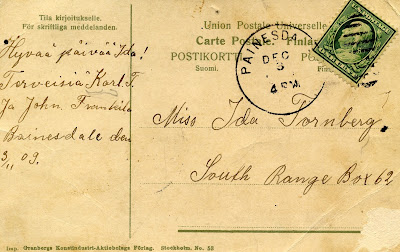 Tila kirjoitukselle.
För skriftliga meddelanden.
Hyvää päivää Ida!
Terveisiä Karl. F.
Ja John. Frankila
Bainesdale den
3/11 09.
Union Postale Universelle
Carte Postale. Finla
POSTIKORTTI
PO
Suomi.
Fin
PAINESDA
DEC
3
4 PM
Miss Ida Tornberg
South Range Box 62
Imp. Granbergs Konstindustri-Aktiebolags Förlag. Stockholm. No. 53